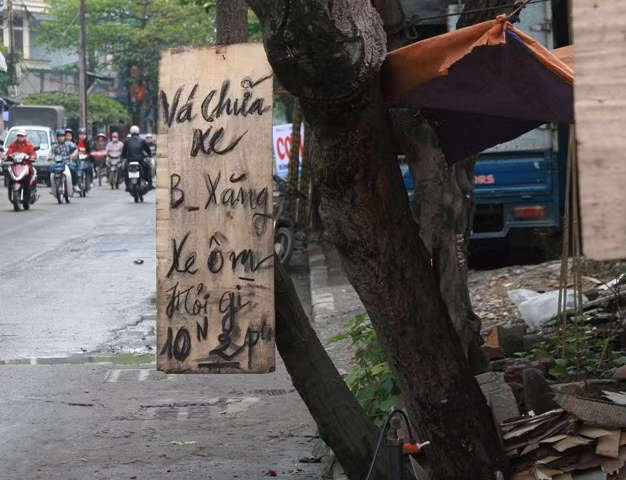 Vá Chữa
Xe
B_ Xăng
Xe ôm
Hỏi gì
10N 2 ph
CO
ORS